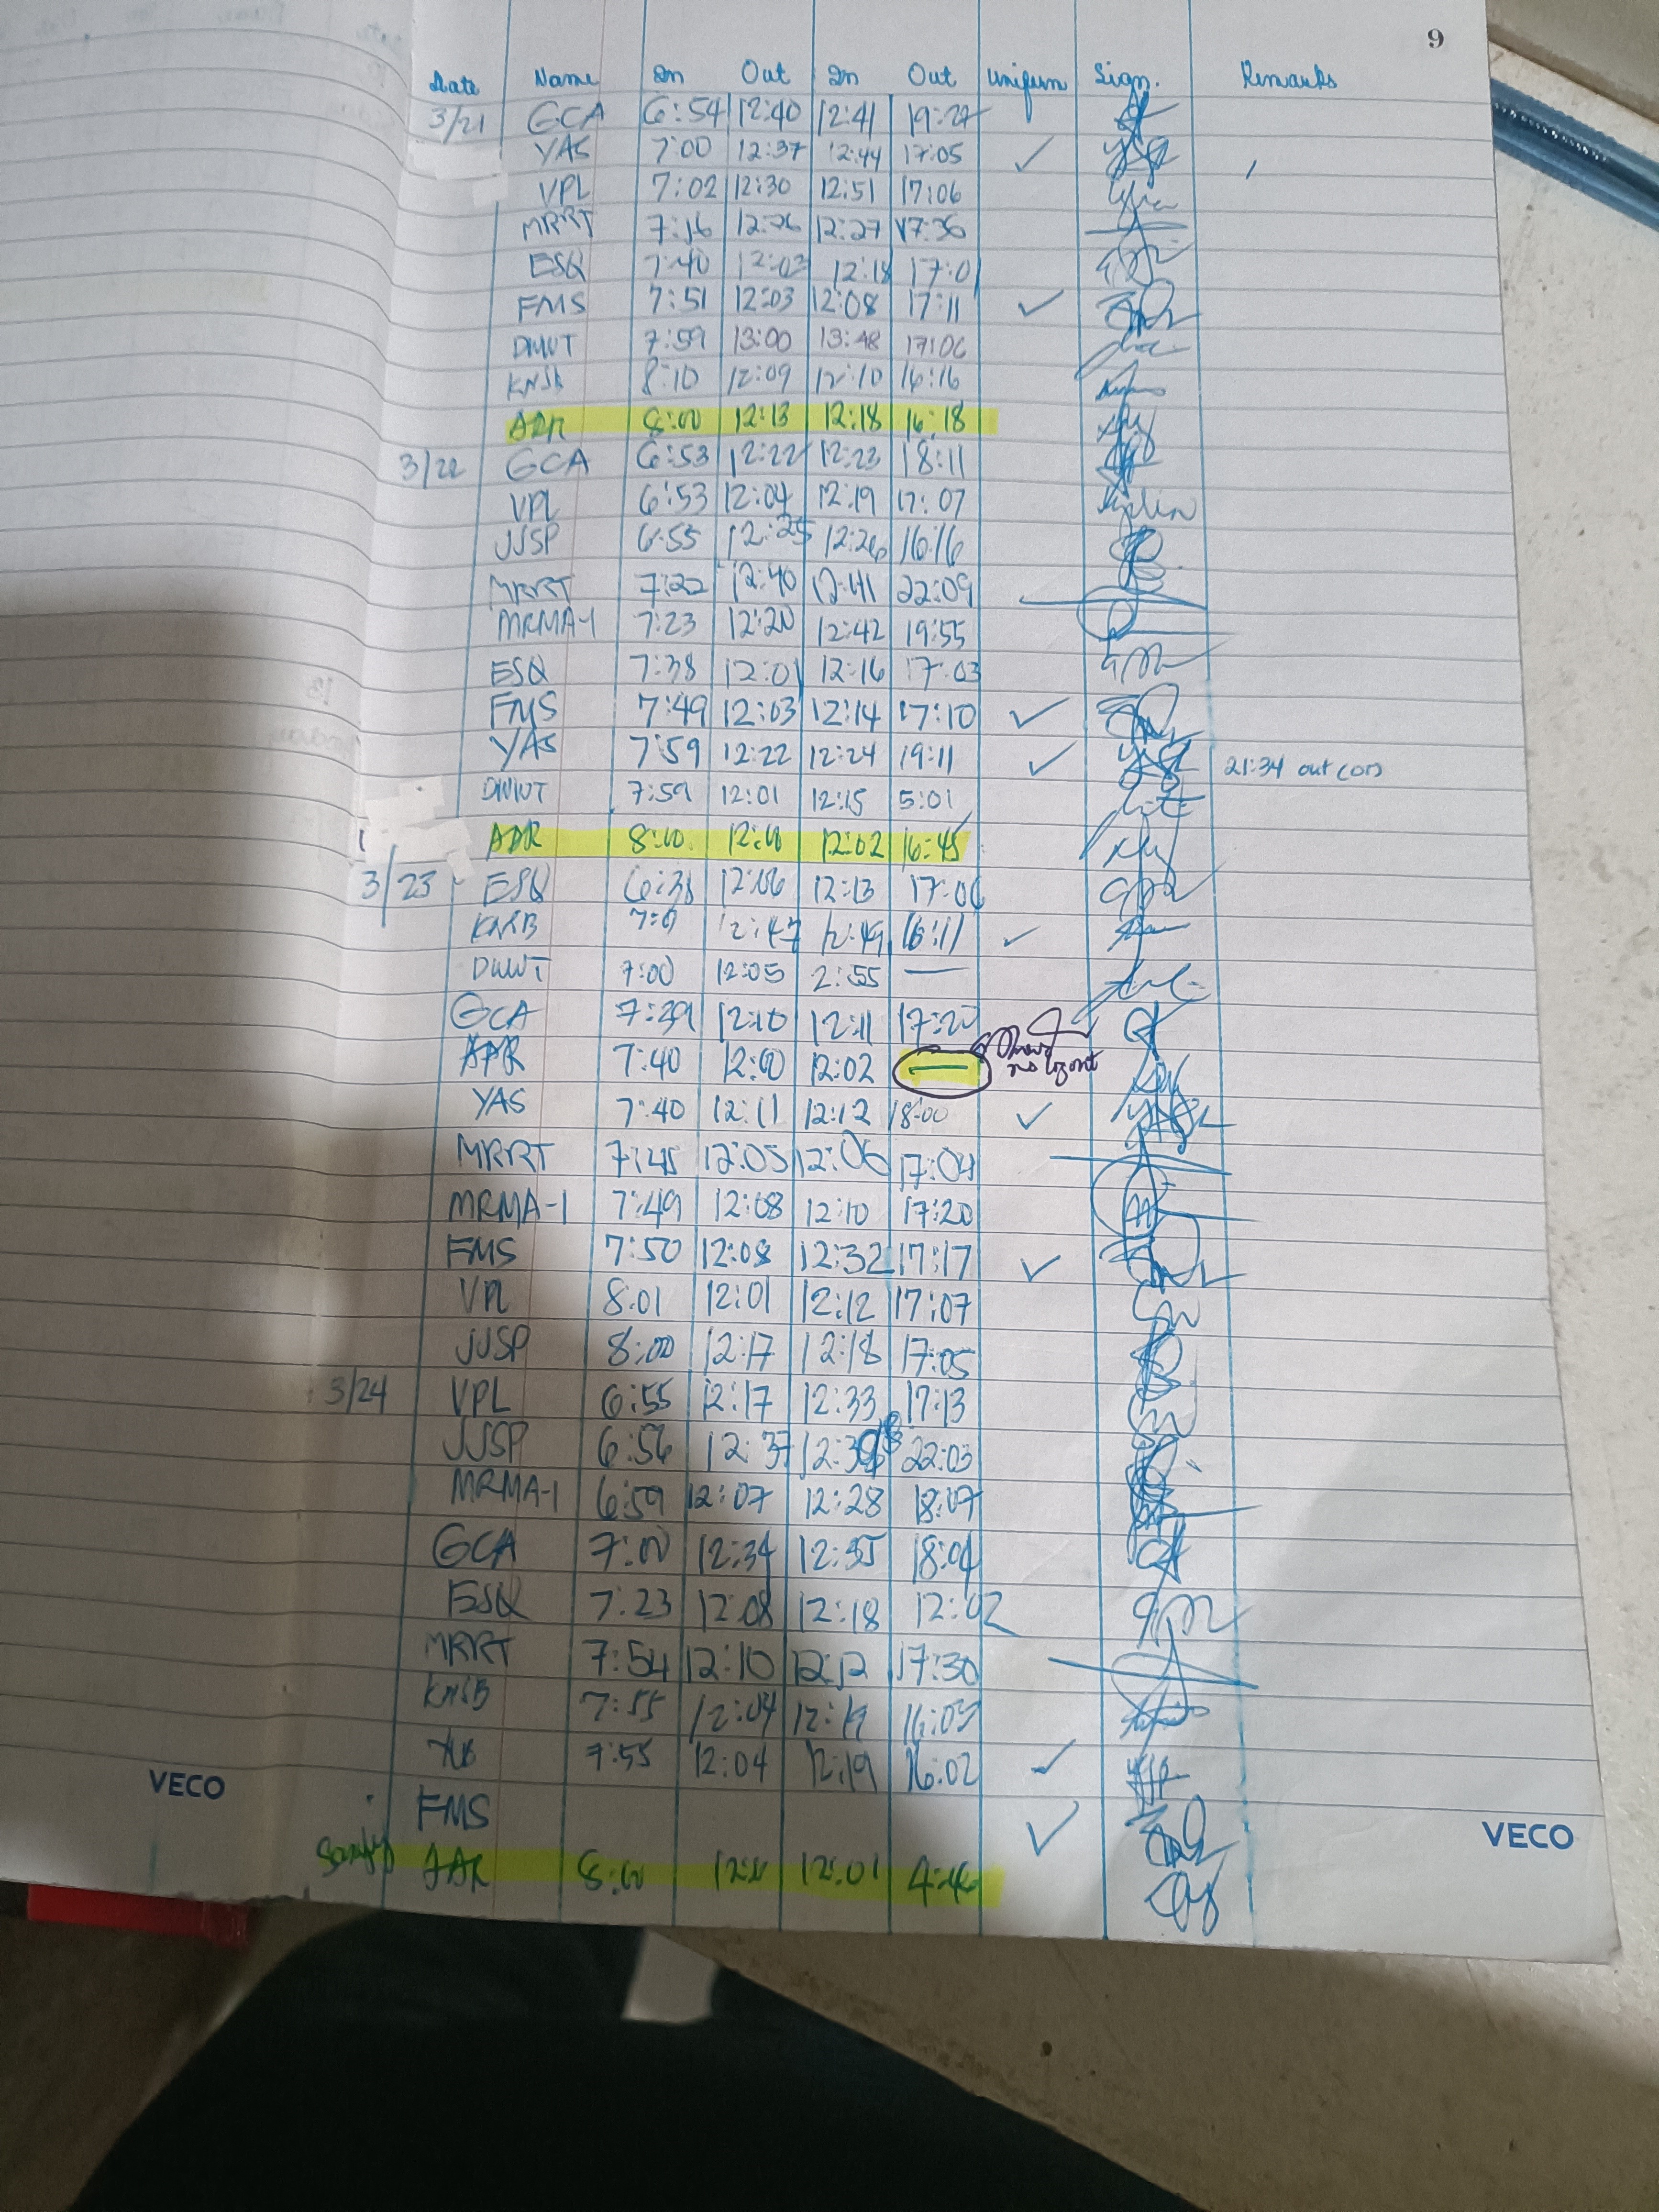 9
Date Name In Out In Out Uniform Sign. Remarks
3/21 GCA 6:54 12:40 12:41 19:27
YAS 7:00 12:37 12:44 17:05 ✓
VPL 7:02 12:30 12:51 17:06
MRRT 7:16 12:26 12:27 17:36
ESQ 7:40 12:03 12:18 17:01
FMS 7:51 12:03 12:08 17:11 ✓
7:59 13:00 13:48 17:06
KNSB 8:10 12:09 12:10 16:16
8:00 12:13 12:18 16:18
3/22 GCA 6:53 12:22 12:23 18:11
VPL 6:53 12:04 12:19 17:07
JJSP 6:55 12:25 12:26 16:16
MRRT 7:22 12:40 12:41 22:09
MRMA-1 7:23 12:20 12:42 19:55
ESQ 7:38 12:01 12:16 17:03
FMS 7:49 12:03 12:14 17:10 ✓
YAS 7:59 12:22 12:24 19:11 ✓ 21:34 out
7:59 12:01 12:15 5:01
8:00 12:02 16:45
3/23 ESQ 6:38 12:06 12:13 17:06
12:47 12:49 16:11 ✓
7:00 12:05 2:55 —
GCA 7:39 12:10 12:11 17:20
7:40 12:00 12:02 — no logout
YAS 7:40 12:11 12:12 18:00 ✓
MRRT 7:45 12:05 12:06 17:04
MRMA-1 7:49 12:08 12:10 17:20
FMS 7:50 12:08 12:32 17:17 ✓
VPL 8:01 12:01 12:12 17:07
JJSP 8:00 12:17 12:18 17:05
3/24 VPL 6:55 12:17 12:33 17:13
JJSP 6:56 12:37 22:03
MRMA-1 6:59 12:07 12:28 18:07
GCA 7:00 12:34 12:35 18:04
ESQ 7:23 12:08 12:18 12:02
MRRT 7:54 12:10 12:12 17:30
KNSB 7:55 12:04 12:19 16:03
7:55 12:04 12:19 16:02 ✓
FMS ✓
8:00 12:01 4:46
VECO
VECO